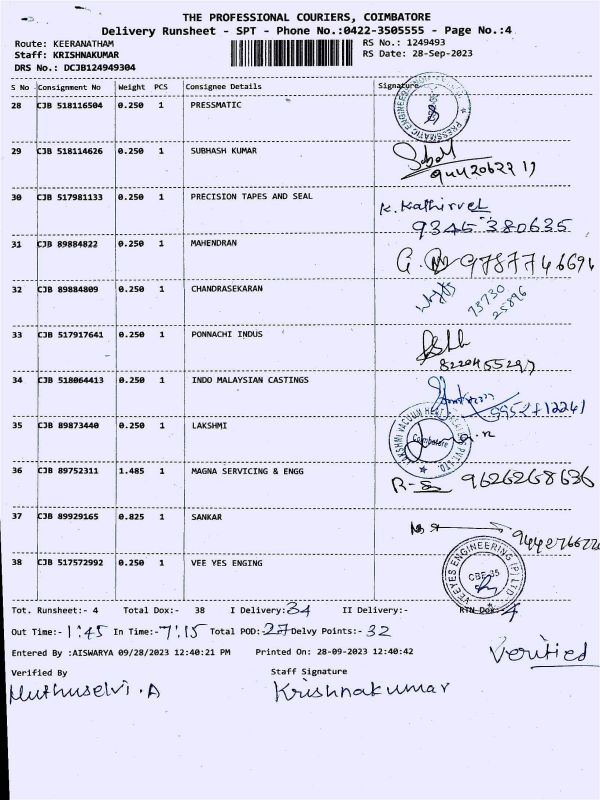 THE PROFESSIONAL COURIERS, COIMBATORE
Delivery Runsheet - SPT - Phone No.:0422-3505555 - Page No.:4
Route: KEERANATHAM RS No.: 1249493
Staff: KRISHNAKUMAR RS Date: 28-Sep-2023
DRS No.: DCJB124949304
S No Consignment No Weight PCS Consignee Details Signature
28 CJB 518116504 0.250 1 PRESSMATIC
29 CJB 518114626 0.250 1 SUBHASH KUMAR
30 CJB 517981133 0.250 1 PRECISION TAPES AND SEAL K. Kathirvel
9345380635
31 CJB 89884822 0.250 1 MAHENDRAN 9787746694
32 CJB 89884809 0.250 1 CHANDRASEKARAN 73730
25896
33 CJB 517917641 0.250 1 PONNACHI INDUS
8220455297
34 CJB 518064413 0.250 1 INDO MALAYSIAN CASTINGS
9952712241
35 CJB 89873440 0.250 1 LAKSHMI LAKSHMI VACUUM HEAT PVT.LTD. Coimbatore
36 CJB 89752311 1.485 1 MAGNA SERVICING & ENGG 9626268636
37 CJB 89929165 0.825 1 SANKAR
38 CJB 517572992 0.250 1 VEE YES ENGING VEEYES ENGINEERING (P) LTD CBE-35
Tot. Runsheet:- 4 Total Dox:- 38 I Delivery:- 34 II Delivery:- RTN Dox:- 4
Out Time:- 1:45 In Time:- 7:15 Total POD:- 27 Delvy Points:- 32
Entered By :AISWARYA 09/28/2023 12:40:21 PM Printed On: 28-09-2023 12:40:42 Verified
Verified By Staff Signature
Muthuselvi.A Krishnakumar